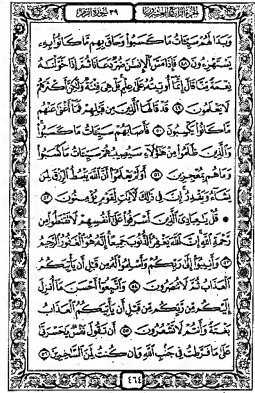 ٣٩ سُورَةُ الزُّمَرِ
وَبَدَا لَهُمْ سَيِّـَٔاتُ مَا كَسَبُوا۟ وَحَاقَ بِهِم مَّا كَانُوا۟ بِهِۦ
يَسْتَهْزِءُونَ ٤٨ فَإِذَا مَسَّ ٱلْإِنسَٰنَ ضُرٌّ دَعَانَا ثُمَّ إِذَا خَوَّلْنَٰهُ
نِعْمَةً مِّنَّا قَالَ إِنَّمَآ أُوتِيتُهُۥ عَلَىٰ عِلْمٍۭ بَلْ هِىَ فِتْنَةٌ وَلَٰكِنَّ أَكْثَرَهُمْ
لَا يَعْلَمُونَ ٤٩ قَدْ قَالَهَا ٱلَّذِينَ مِن قَبْلِهِمْ فَمَآ أَغْنَىٰ عَنْهُم
مَّا كَانُوا۟ يَكْسِبُونَ ٥٠ فَأَصَابَهُمْ سَيِّـَٔاتُ مَا كَسَبُوا۟
وَٱلَّذِينَ ظَلَمُوا۟ مِنْ هَٰٓؤُلَآءِ سَيُصِيبُهُمْ سَيِّـَٔاتُ مَا كَسَبُوا۟
وَمَا هُم بِمُعْجِزِينَ ٥١ أَوَلَمْ يَعْلَمُوٓا۟ أَنَّ ٱللَّهَ يَبْسُطُ ٱلرِّزْقَ لِمَن
يَشَآءُ وَيَقْدِرُ إِنَّ فِى ذَٰلِكَ لَـَٔايَٰتٍ لِّقَوْمٍ يُؤْمِنُونَ ٥٢
قُلْ يَٰعِبَادِىَ ٱلَّذِينَ أَسْرَفُوا۟ عَلَىٰٓ أَنفُسِهِمْ لَا تَقْنَطُوا۟ مِن
رَّحْمَةِ ٱللَّهِ إِنَّ ٱللَّهَ يَغْفِرُ ٱلذُّنُوبَ جَمِيعًا إِنَّهُۥ هُوَ ٱلْغَفُورُ ٱلرَّحِيمُ
٥٣ وَأَنِيبُوٓا۟ إِلَىٰ رَبِّكُمْ وَأَسْلِمُوا۟ لَهُۥ مِن قَبْلِ أَن يَأْتِيَكُمُ
ٱلْعَذَابُ ثُمَّ لَا تُنصَرُونَ ٥٤ وَٱتَّبِعُوٓا۟ أَحْسَنَ مَآ أُنزِلَ
إِلَيْكُم مِّن رَّبِّكُم مِّن قَبْلِ أَن يَأْتِيَكُمُ ٱلْعَذَابُ
بَغْتَةً وَأَنتُمْ لَا تَشْعُرُونَ ٥٥ أَن تَقُولَ نَفْسٌ يَٰحَسْرَتَىٰ
عَلَىٰ مَا فَرَّطتُ فِى جَنۢبِ ٱللَّهِ وَإِن كُنتُ لَمِنَ ٱلسَّٰخِرِينَ ٥٦
٤٦٤